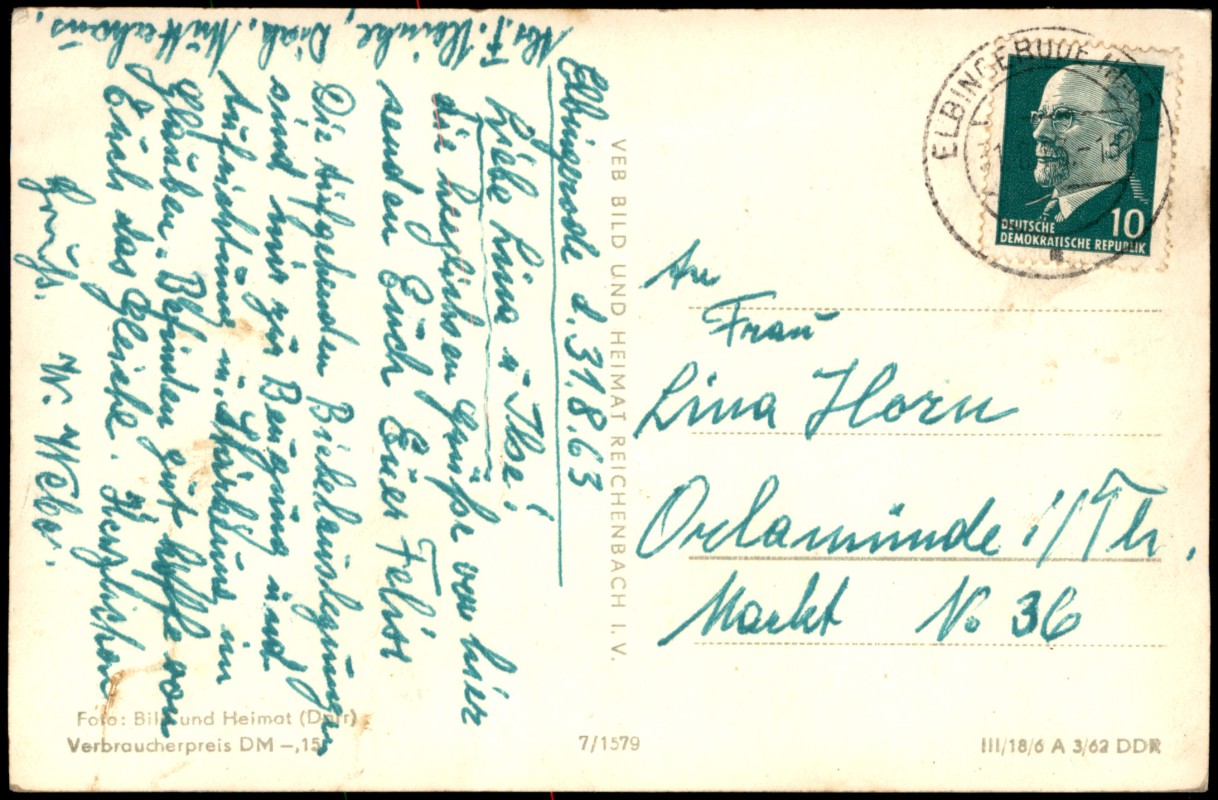 Abs. F. Heinke, Diak. Mutterhaus.
Elbingerode d. 31.8.63
Liebe Lina u. Ilse!
die herzlichsten Grüße von hier
senden Euch Eure
Die tiefgehenden Bibelauslegungen
sind mir zur Beugung und
Aufrichtung u. Stärkung im
Glauben. Befinden gut hoffe von
Euch das Gleiche. Herzlichen
Gruß. W. Weber.
VEB BILD UND HEIMAT REICHENBACH I. V.
ELBINGERODE
DEUTSCHE
DEMOKRATISCHE REPUBLIK
10
An
Frau
Lina Horn
Orlamünde i/Th.
Markt No 36
Foto: Bild und Heimat (Dörr)
Verbraucherpreis DM –,15
7/1579
III/18/6 A 3/62 DDR